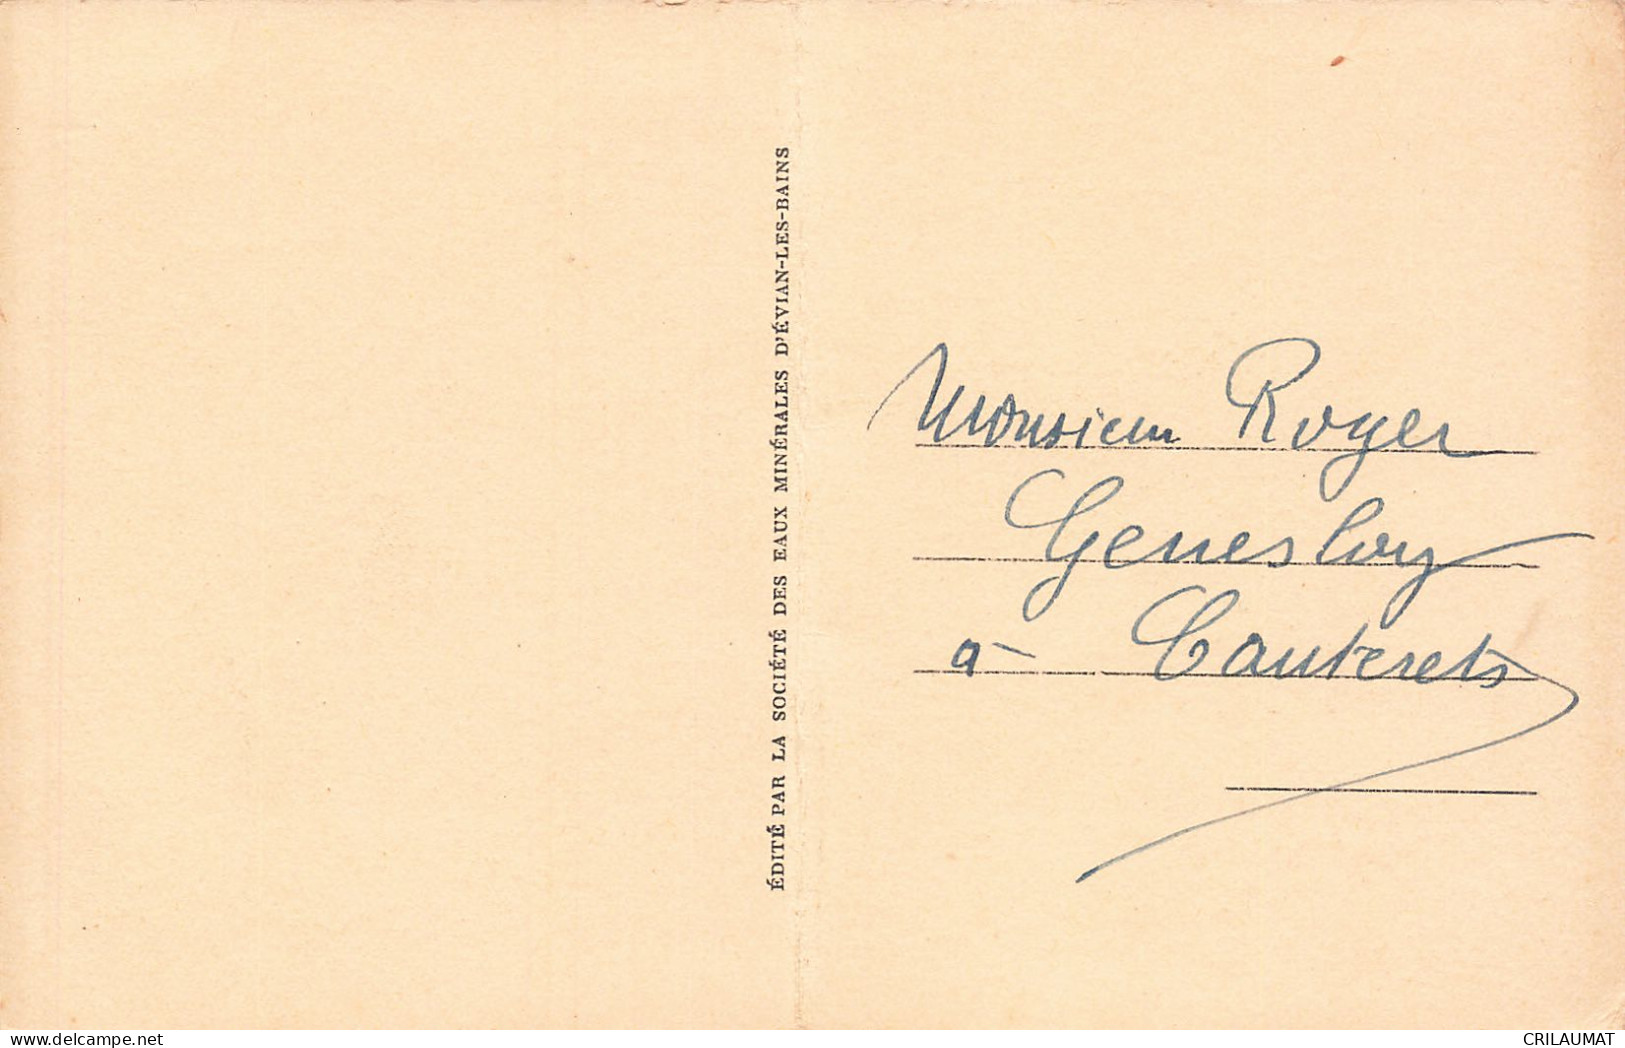 ÉDITÉ PAR LA SOCIÉTÉ DES EAUX MINÉRALES D'ÉVIAN-LES-BAINS
Monsieur Roger
Genesloy
à Cauterets
delcampe.net
CRILAUMAT